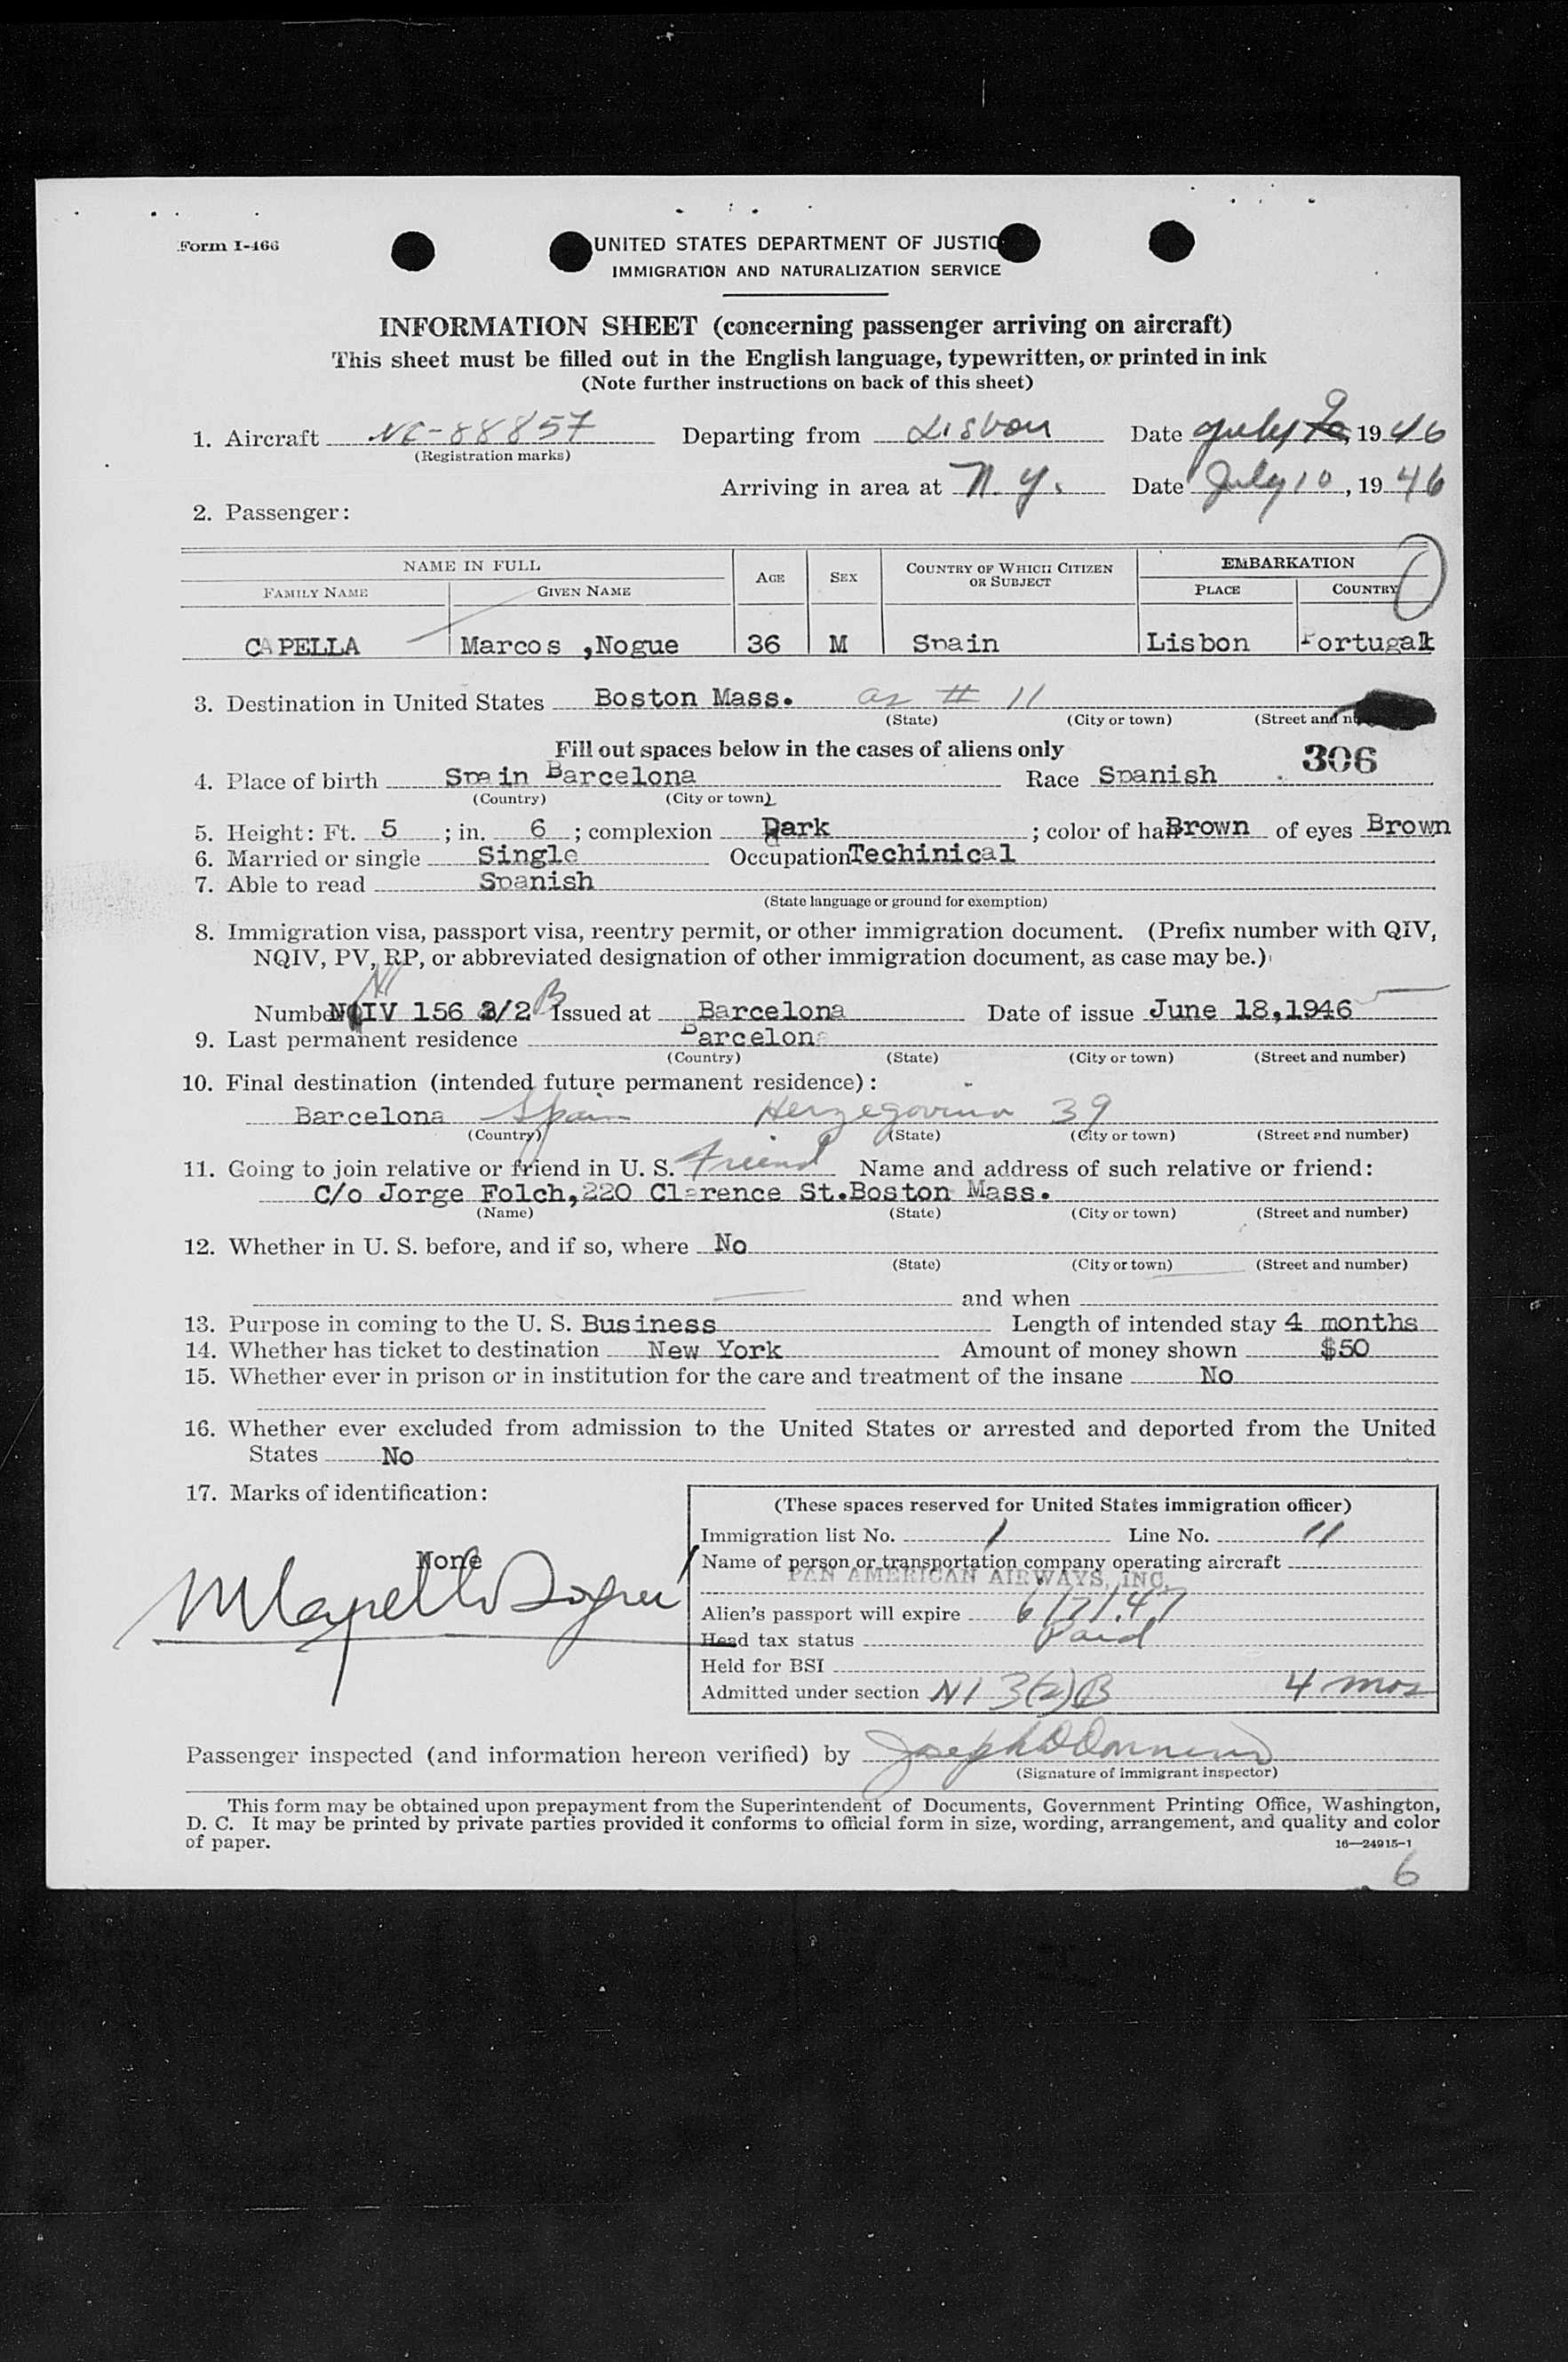 Form I-466
UNITED STATES DEPARTMENT OF JUSTIC
IMMIGRATION AND NATURALIZATION SERVICE
INFORMATION SHEET (concerning passenger arriving on aircraft)
This sheet must be filled out in the English language, typewritten, or printed in ink
(Note further instructions on back of this sheet)
1. Aircraft NC-88857 Departing from Lisbon Date July 9, 1946
(Registration marks)
Arriving in area at N.Y. Date July 10, 1946
2. Passenger:
NAME IN FULL AGE SEX COUNTRY OF WHICH CITIZEN OR SUBJECT EMBARKATION
FAMILY NAME GIVEN NAME PLACE COUNTRY
CAPELLA Marcos ,Nogue 36 M Spain Lisbon Portugal
3. Destination in United States Boston Mass. as # 11
(State) (City or town) (Street and nu
Fill out spaces below in the cases of aliens only
306
4. Place of birth Spain Barcelona Race Spanish
(Country) (City or town)
5. Height: Ft. 5 ; in. 6 ; complexion Dark ; color of hair Brown of eyes Brown
6. Married or single Single Occupation Techinical
7. Able to read Spanish
(State language or ground for exemption)
8. Immigration visa, passport visa, reentry permit, or other immigration document. (Prefix number with QIV,
NQIV, PV, RP, or abbreviated designation of other immigration document, as case may be.)
NI
Number NQIV 156 3/2 B Issued at Barcelona Date of issue June 18,1946
9. Last permanent residence Barcelona
(Country) (State) (City or town) (Street and number)
10. Final destination (intended future permanent residence):
Barcelona Spain Herzegovina 39
(Country) (State) (City or town) (Street and number)
11. Going to join relative or friend in U. S. Friend Name and address of such relative or friend:
C/o Jorge Folch,220 Clarence St.Boston Mass.
(Name) (State) (City or town) (Street and number)
12. Whether in U. S. before, and if so, where No
(State) (City or town) (Street and number)
and when
13. Purpose in coming to the U. S. Business Length of intended stay 4 months
14. Whether has ticket to destination New York Amount of money shown $50
15. Whether ever in prison or in institution for the care and treatment of the insane No
16. Whether ever excluded from admission to the United States or arrested and deported from the United
States No
17. Marks of identification:
None
(These spaces reserved for United States immigration officer)
Immigration list No. 1 Line No. 11
Name of person or transportation company operating aircraft
PAN AMERICAN AIRWAYS, INC.
Alien's passport will expire 6/7/47
Head tax status Paid
Held for BSI
Admitted under section NI 3(2)B 4 mos
Passenger inspected (and information hereon verified) by
(Signature of immigrant inspector)
This form may be obtained upon prepayment from the Superintendent of Documents, Government Printing Office, Washington,
D. C. It may be printed by private parties provided it conforms to official form in size, wording, arrangement, and quality and color
of paper.
16—24915-1
6